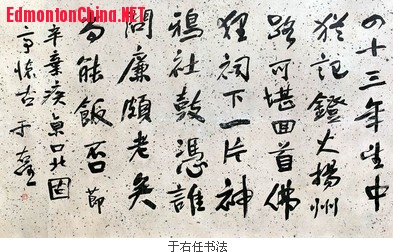 EdmontonChina.NET
四十三年望中
猶記鐙火揚州
路可堪回首佛
狸祠下一片神
鴉社鼓憑誰
問廉頗老矣
尚能飯否 節
辛棄疾京口北固
亭懷古 于右任
于右任书法